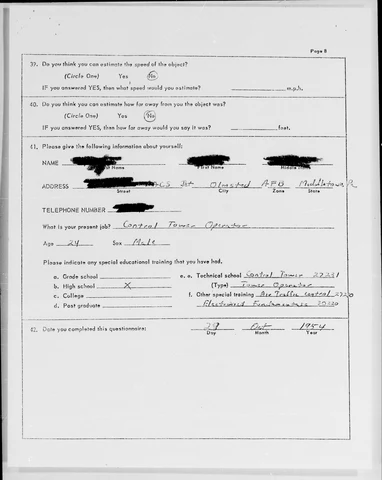 Page 8
39. Do you think you can estimate the speed of the object?
(Circle One) Yes No
IF you answered YES, then what speed would you estimate? m.p.h.
40. Do you think you can estimate how far away from you the object was?
(Circle One) Yes No
IF you answered YES, then how far away would you say it was? feet.
41. Please give the following information about yourself:
NAME
First Name
ADDRESS Olmsted AFB Middletown
Street City Zone State
TELEPHONE NUMBER
What is your present job? Control Tower Operator
Age 24 Sex Male
Please indicate any special educational training that you have had.
a. Grade school e. Technical school Control Tower
b. High school X (Type) Tower Operator
c. College f. Other special training Air Traffic Control
d. Post graduate Electronic Fundamentals
42. Date you completed this questionnaire: 29 Oct 1954
Day Month Year